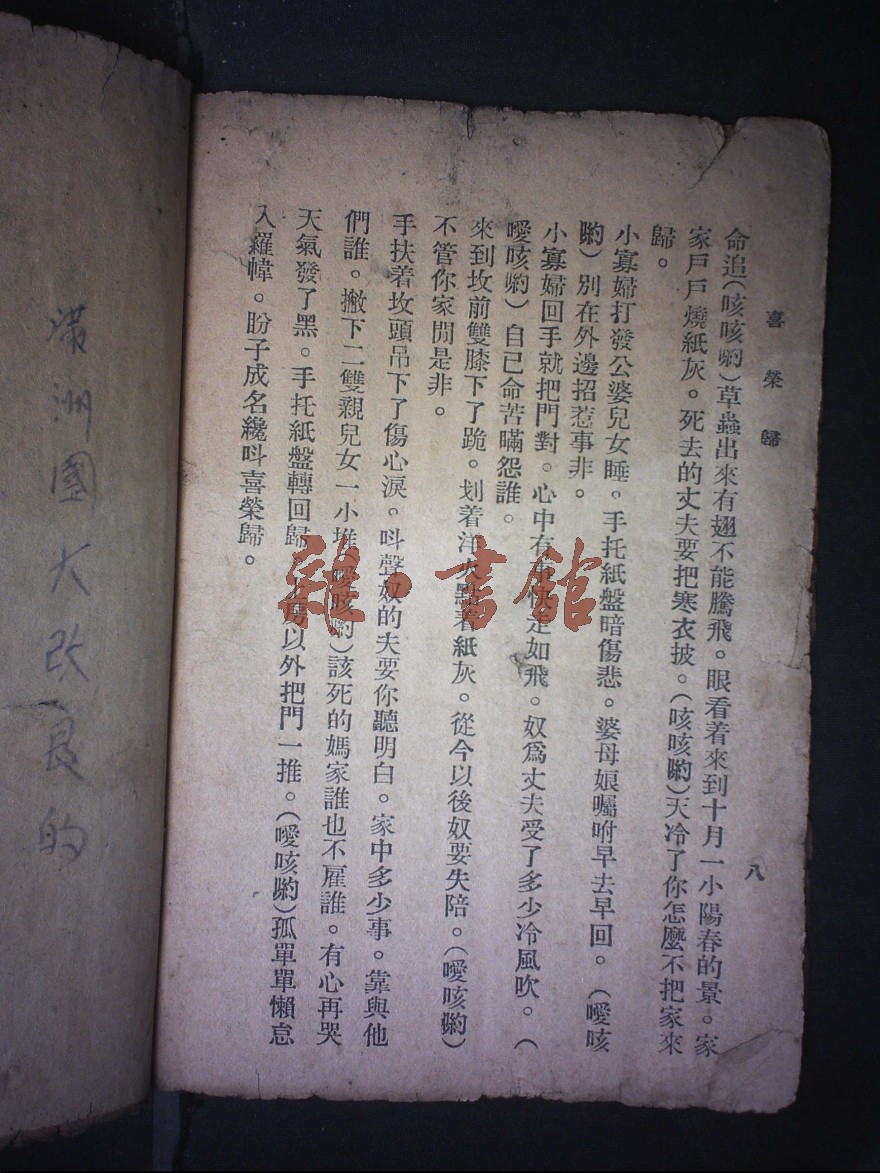 喜榮歸
八
命追(咳咳喲)草蟲出來有翅不能騰飛。眼看着來到十月一小陽春的景。家
家戶戶燒紙灰。死去的丈夫要把寒衣披。(咳咳喲)天冷了你怎麼不把家來
歸。
小寡婦打發公婆兒女睡。手托紙盤暗傷悲。婆母娘囑咐早去早回。(噯咳
喲)別在外邊招惹事非。
小寡婦回手就把門對。心中有事快走如飛。奴爲丈夫受了多少冷風吹。(
噯咳喲)自己命苦瞞怨誰。
來到坟前雙膝下了跪。划着洋火點着紙灰。從今以後奴要失陪。(噯咳喲)
不管你家閒是非。
手扶着坟頭吊下了傷心淚。呌聲奴的夫要你聽明白。家中多少事。靠與他
們誰。撇下二雙親兒女一小堆(噯咳喲)該死的媽家誰也不雇誰。有心再哭
天氣發了黑。手托紙盤轉回歸。房以外把門一推。(噯咳喲)孤單單懶怠
入羅幃。盼子成名纔呌喜榮歸。
雜·書館
滿洲國大改良的